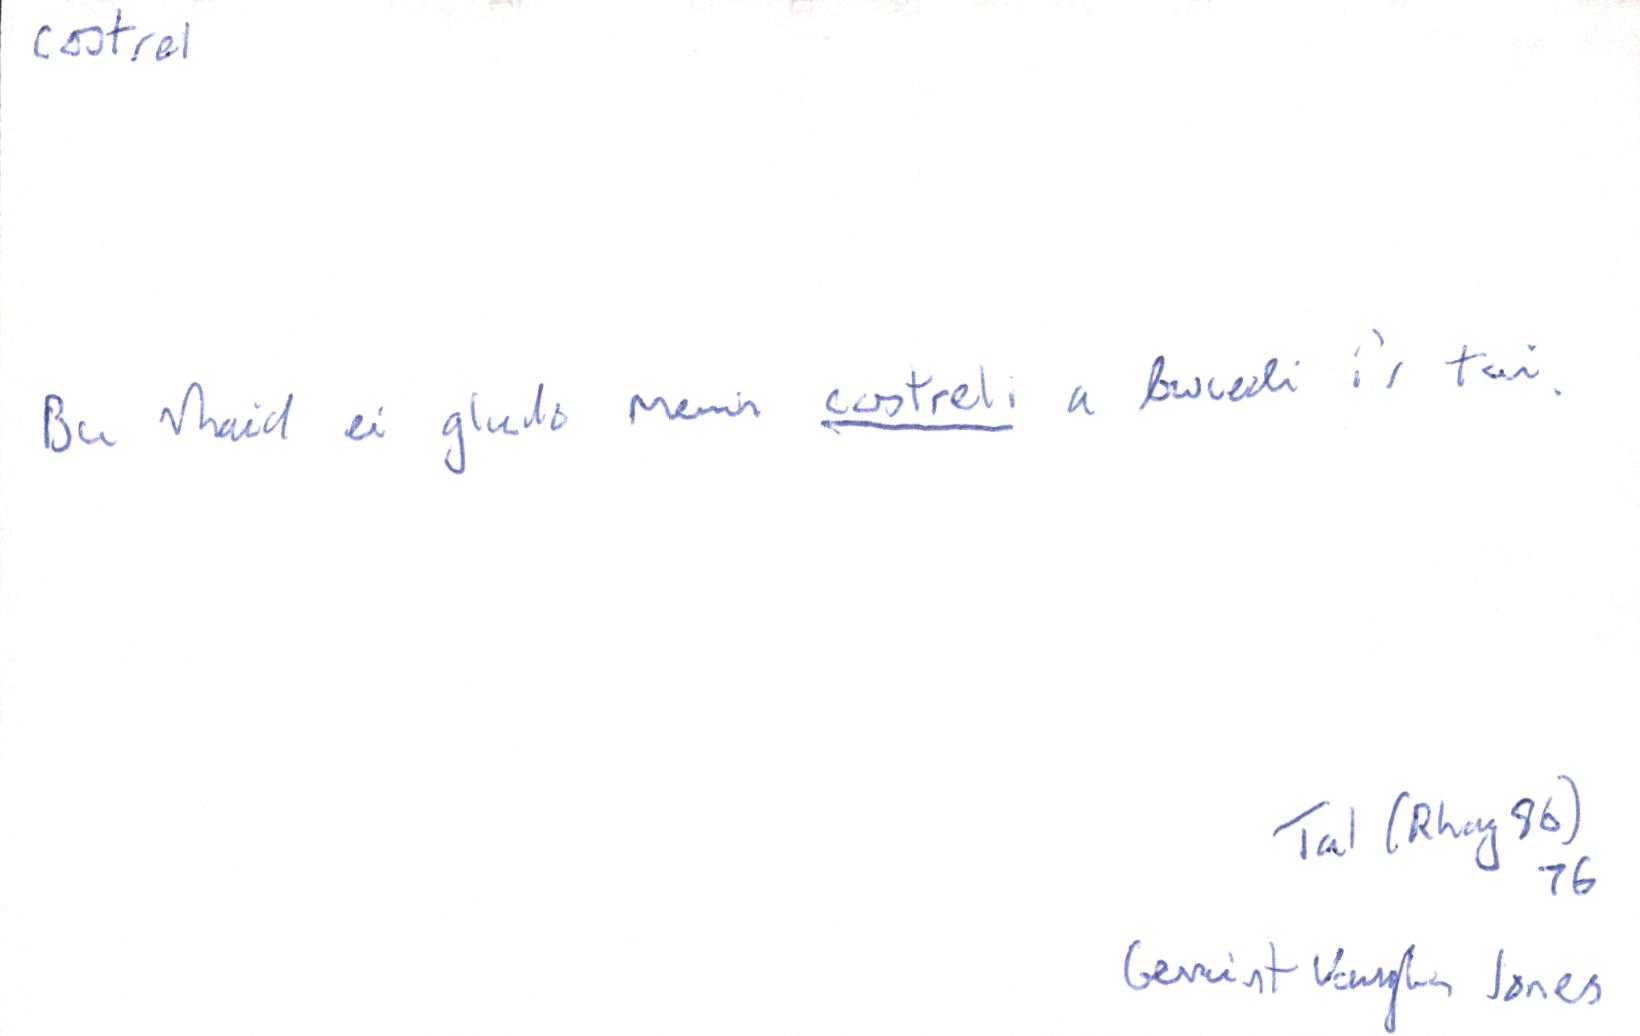 costrel
Bu rhaid ei gludo mewn costreli a bwcedi i'r tai.
Tal (Rhag 86)
76
Geraint Vaughan Jones